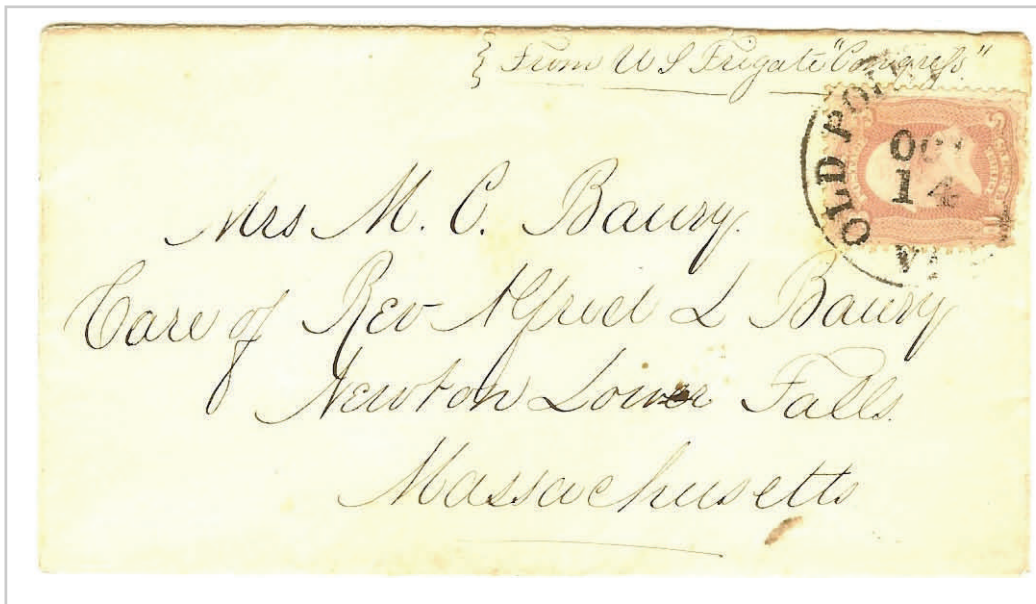 From U S Frigate "Congress"
OLD POIN
OCT
14
VA
Mrs M. C. Baury.
Care of Rev Alfred L Baury
Newton Lower Falls.
Massachusetts